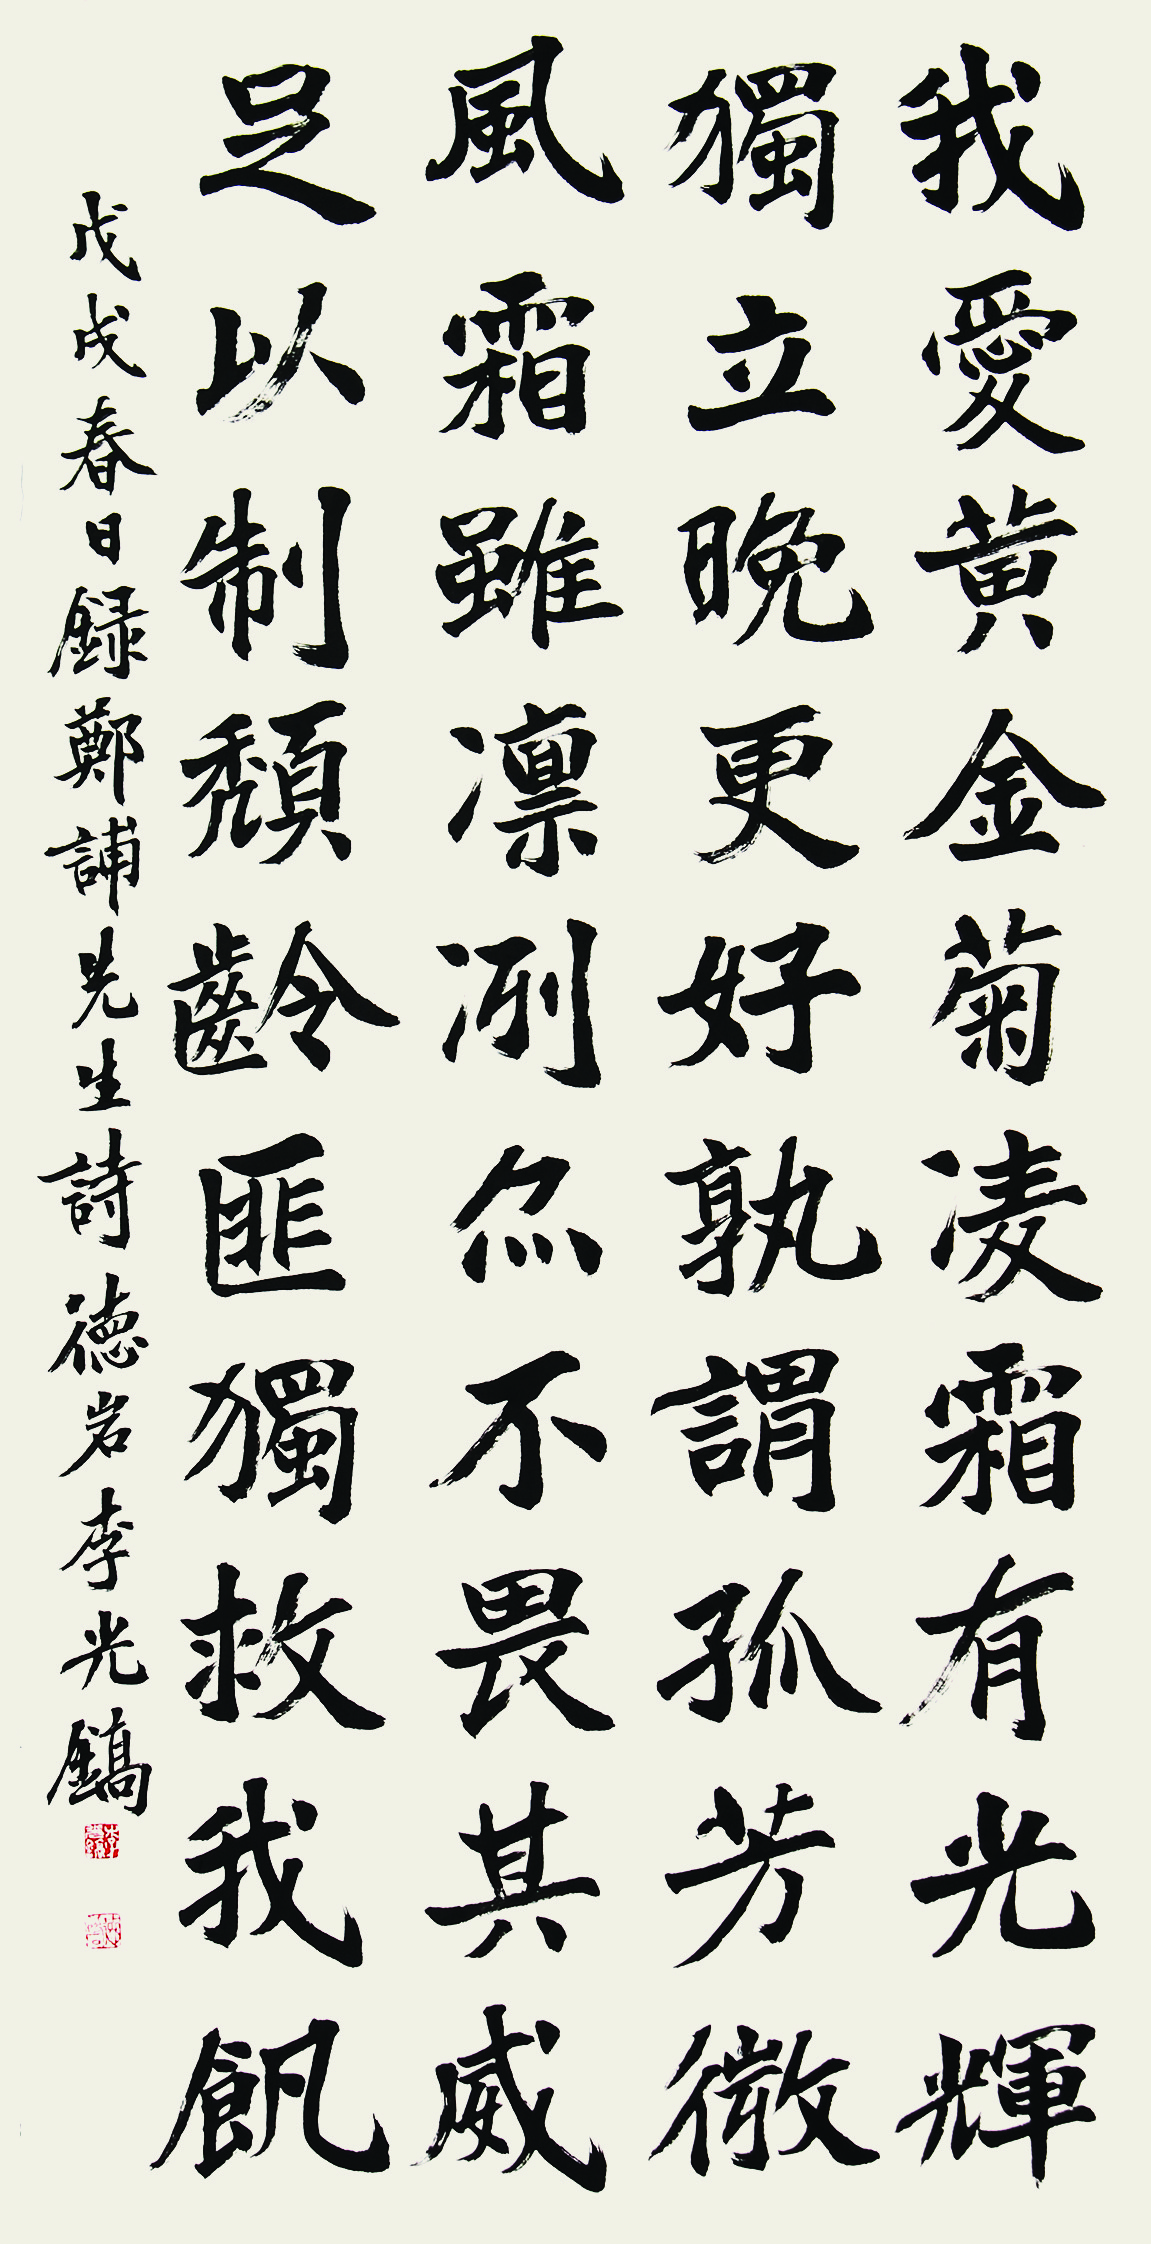 我愛黄金菊凌霜有光輝
獨立晚更好孰謂孤芳微
風霜雖凛冽尒不畏其威
足以制頹齡匪獨救我飢
戊戌春日録鄭誧先生詩德岩李光鎬